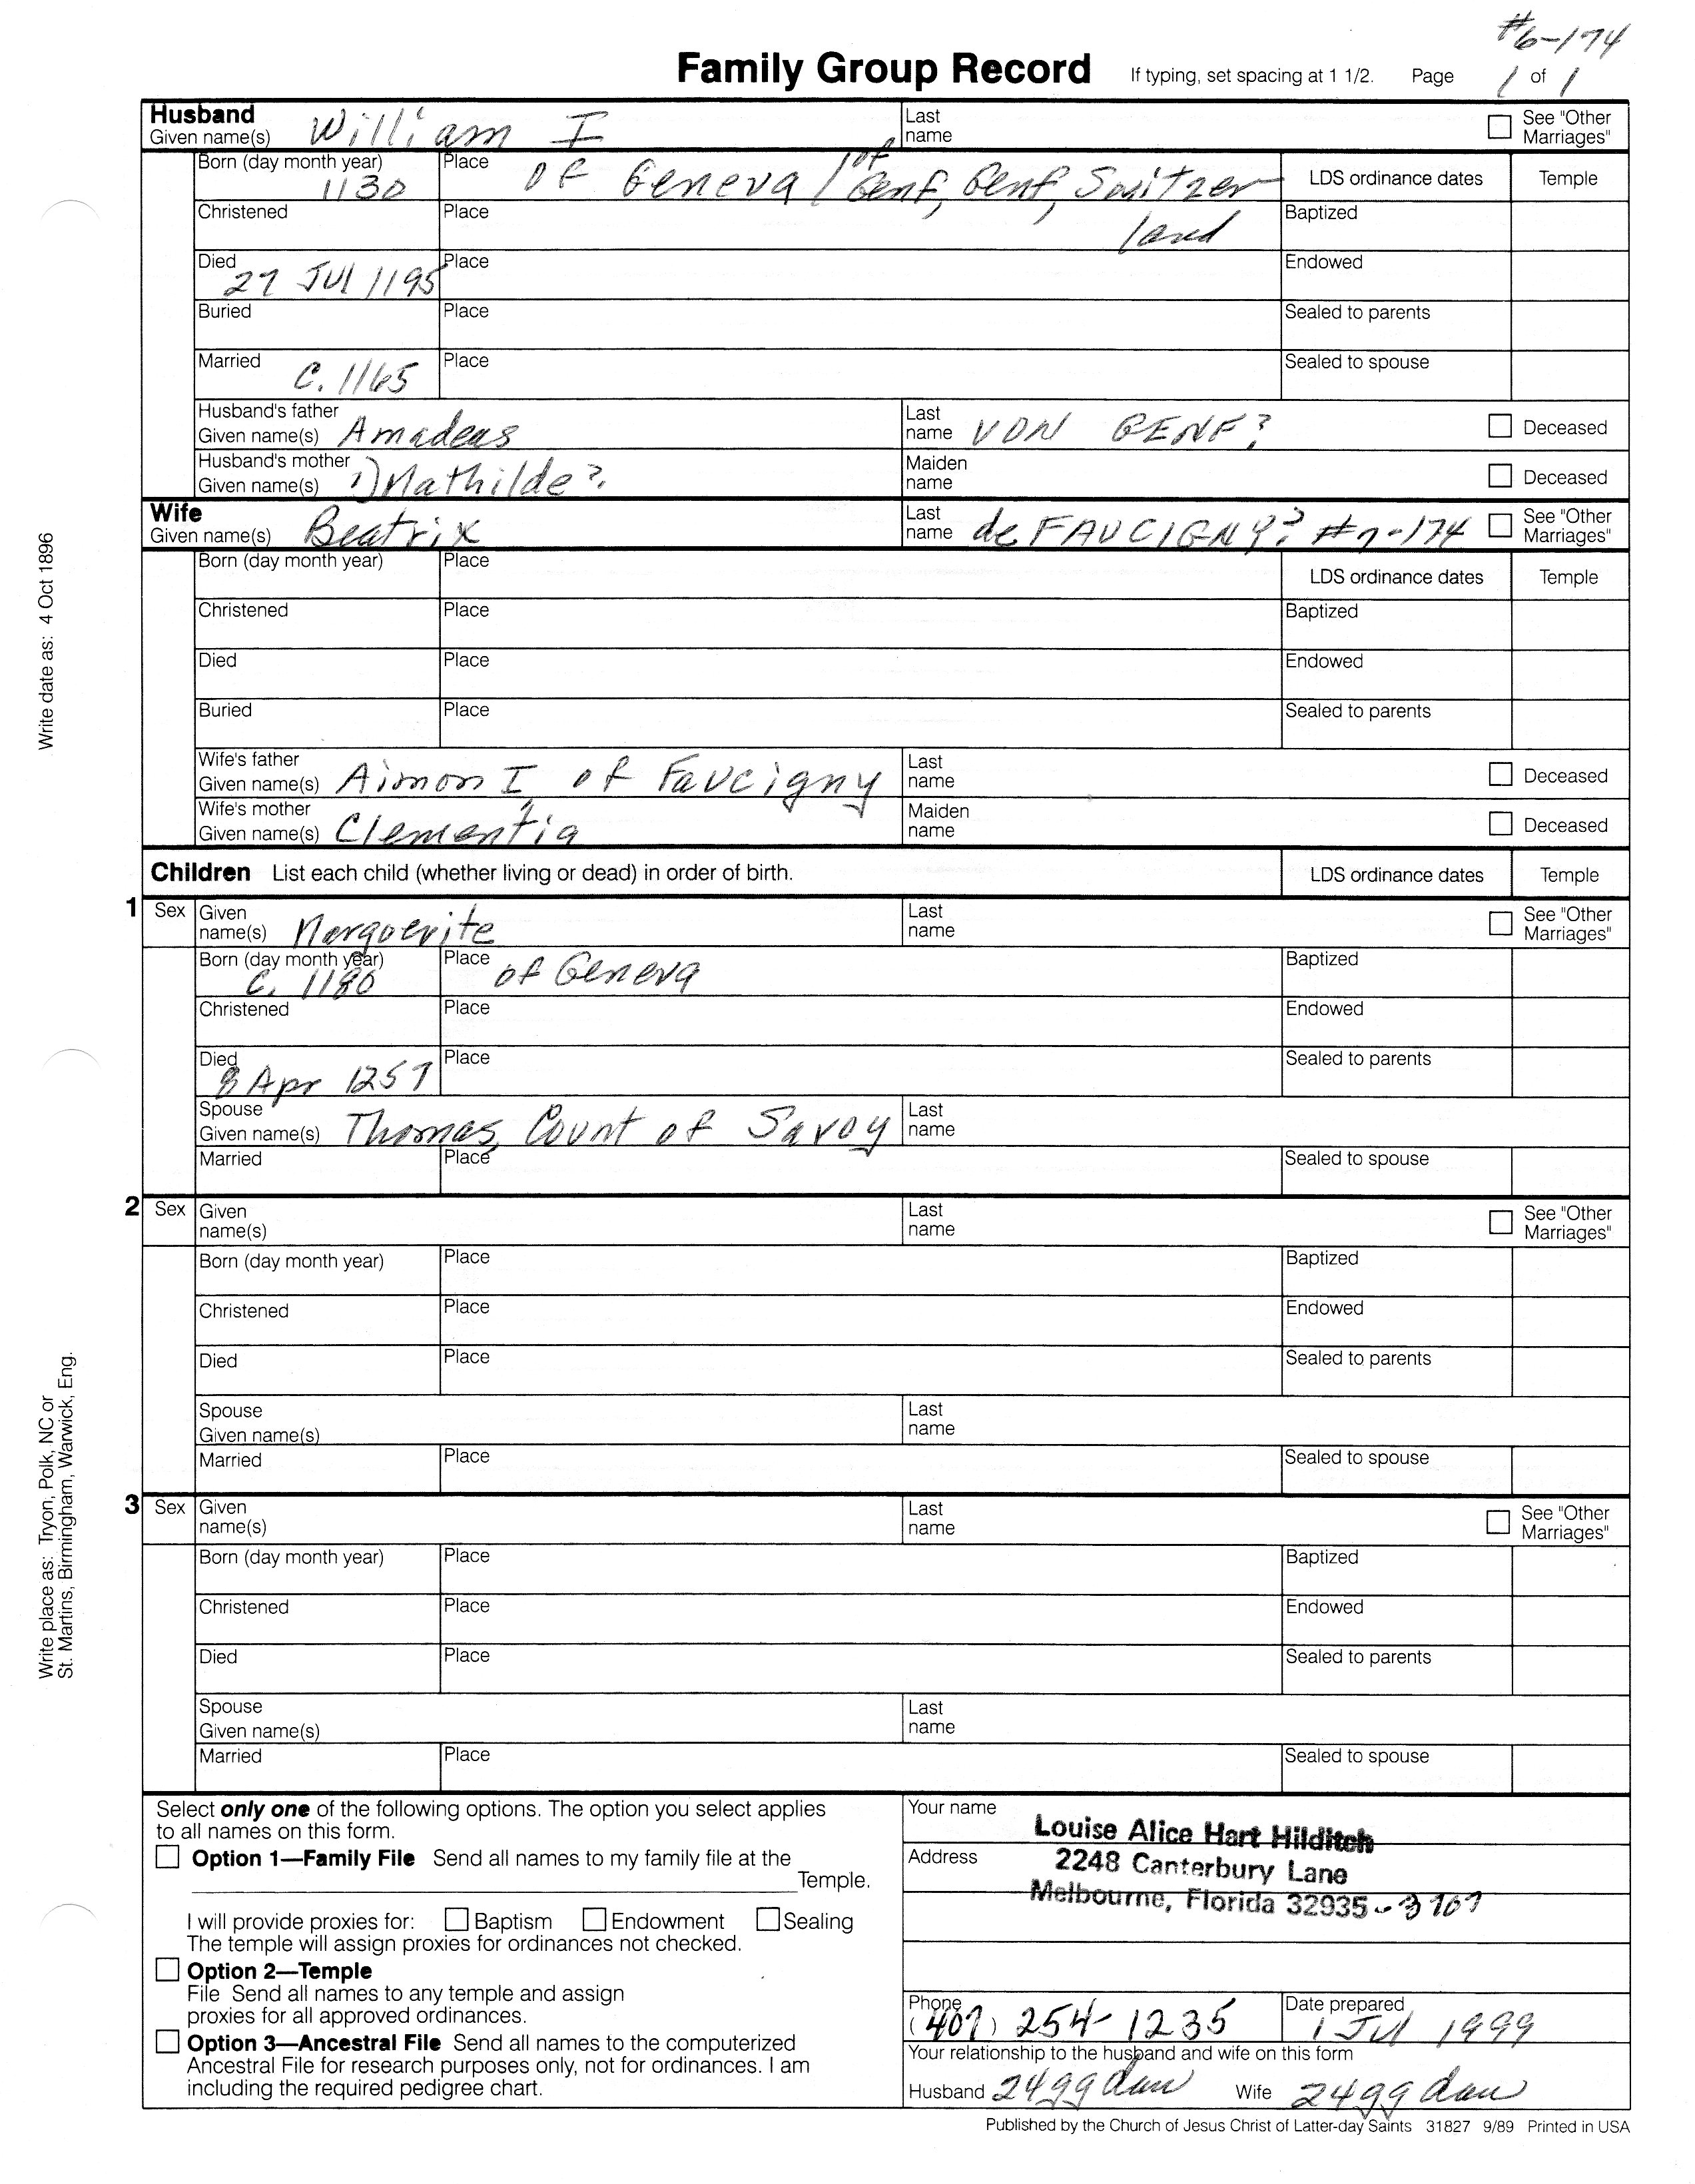 #6-174
Family Group Record If typing, set spacing at 1 1/2. Page 1 of 1
Husband
Given name(s) William I Last name See "Other Marriages"
Born (day month year) 1130 Place of Geneva / of Genf, Genf, Switzerland LDS ordinance dates Temple
Christened Place Baptized
Died 27 JUl 1195 Place Endowed
Buried Place Sealed to parents
Married C. 1165 Place Sealed to spouse
Husband's father
Given name(s) Amadeus Last name VON GENF? Deceased
Husband's mother
Given name(s) 1) Mathilde? Maiden name Deceased
Wife
Given name(s) Beatrix Last name de FAUCIGNY? #7-174 See "Other Marriages"
Born (day month year) Place LDS ordinance dates Temple
Christened Place Baptized
Died Place Endowed
Buried Place Sealed to parents
Wife's father
Given name(s) Aimon I, of Faucigny Last name Deceased
Wife's mother
Given name(s) Clementia Maiden name Deceased
Children List each child (whether living or dead) in order of birth. LDS ordinance dates Temple
1 Sex Given name(s) Marguerite Last name See "Other Marriages"
Born (day month year) C. 1180 Place of Geneva Baptized
Christened Place Endowed
Died 8 Apr 1257 Place Sealed to parents
Spouse
Given name(s) Thomas, Count of Savoy Last name
Married Place Sealed to spouse
2 Sex Given name(s) Last name See "Other Marriages"
Born (day month year) Place Baptized
Christened Place Endowed
Died Place Sealed to parents
Spouse
Given name(s) Last name
Married Place Sealed to spouse
3 Sex Given name(s) Last name See "Other Marriages"
Born (day month year) Place Baptized
Christened Place Endowed
Died Place Sealed to parents
Spouse
Given name(s) Last name
Married Place Sealed to spouse
Write date as: 4 Oct 1896
Write place as: Tryon, Polk, NC or
St. Martins, Birmingham, Warwick, Eng.
Select only one of the following options. The option you select applies
to all names on this form.
Option 1—Family File Send all names to my family file at the
Temple.
I will provide proxies for: Baptism Endowment Sealing
The temple will assign proxies for ordinances not checked.
Option 2—Temple
File Send all names to any temple and assign
proxies for all approved ordinances.
Option 3—Ancestral File Send all names to the computerized
Ancestral File for research purposes only, not for ordinances. I am
including the required pedigree chart.
Your name Louise Alice Hart Hilditch
Address 2248 Canterbury Lane
Melbourne, Florida 32935-3707
Phone (407) 254-1235 Date prepared 1 Jul 1999
Your relationship to the husband and wife on this form
Husband 24gg dau Wife 24gg dau
Published by the Church of Jesus Christ of Latter-day Saints 31827 9/89 Printed in USA